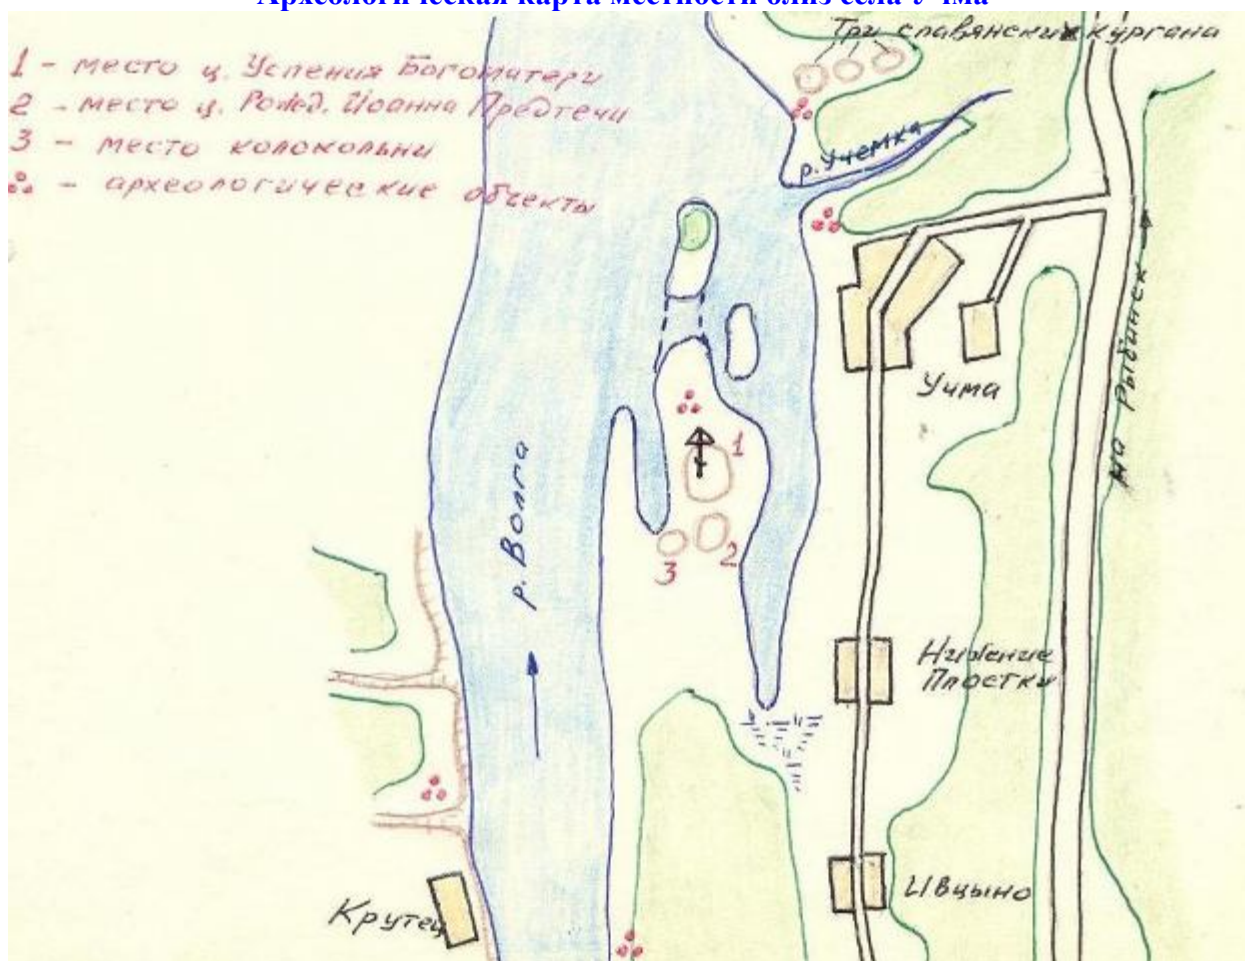 Археологическая карта местности близ села Учма
1 - место ц. Успения Богоматери
2 - место ц. Рожд. Иоанна Предтечи
3 - место колокольни
- археологические объекты
Три славянских кургана
р. Учемка
на Рыбинск
Учма
1
2
3
р. Волга
Нижние
Плостки
Ивцыно
Крутец